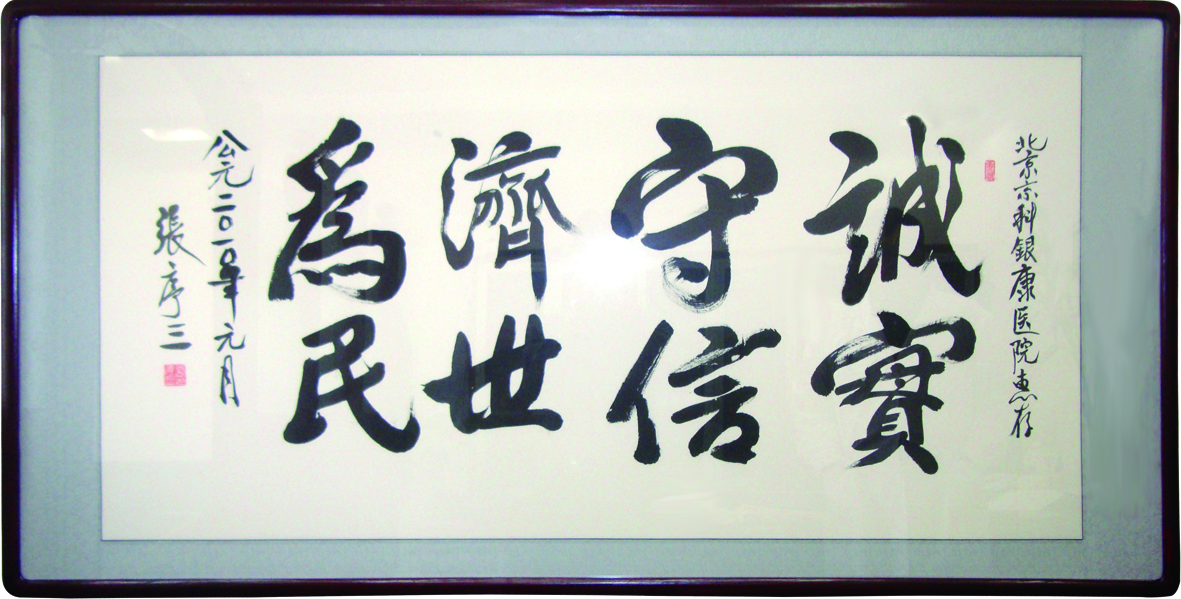 北京京科銀康医院惠存
誠實
守信
濟世
爲民
公元二〇一〇年元月
張序三